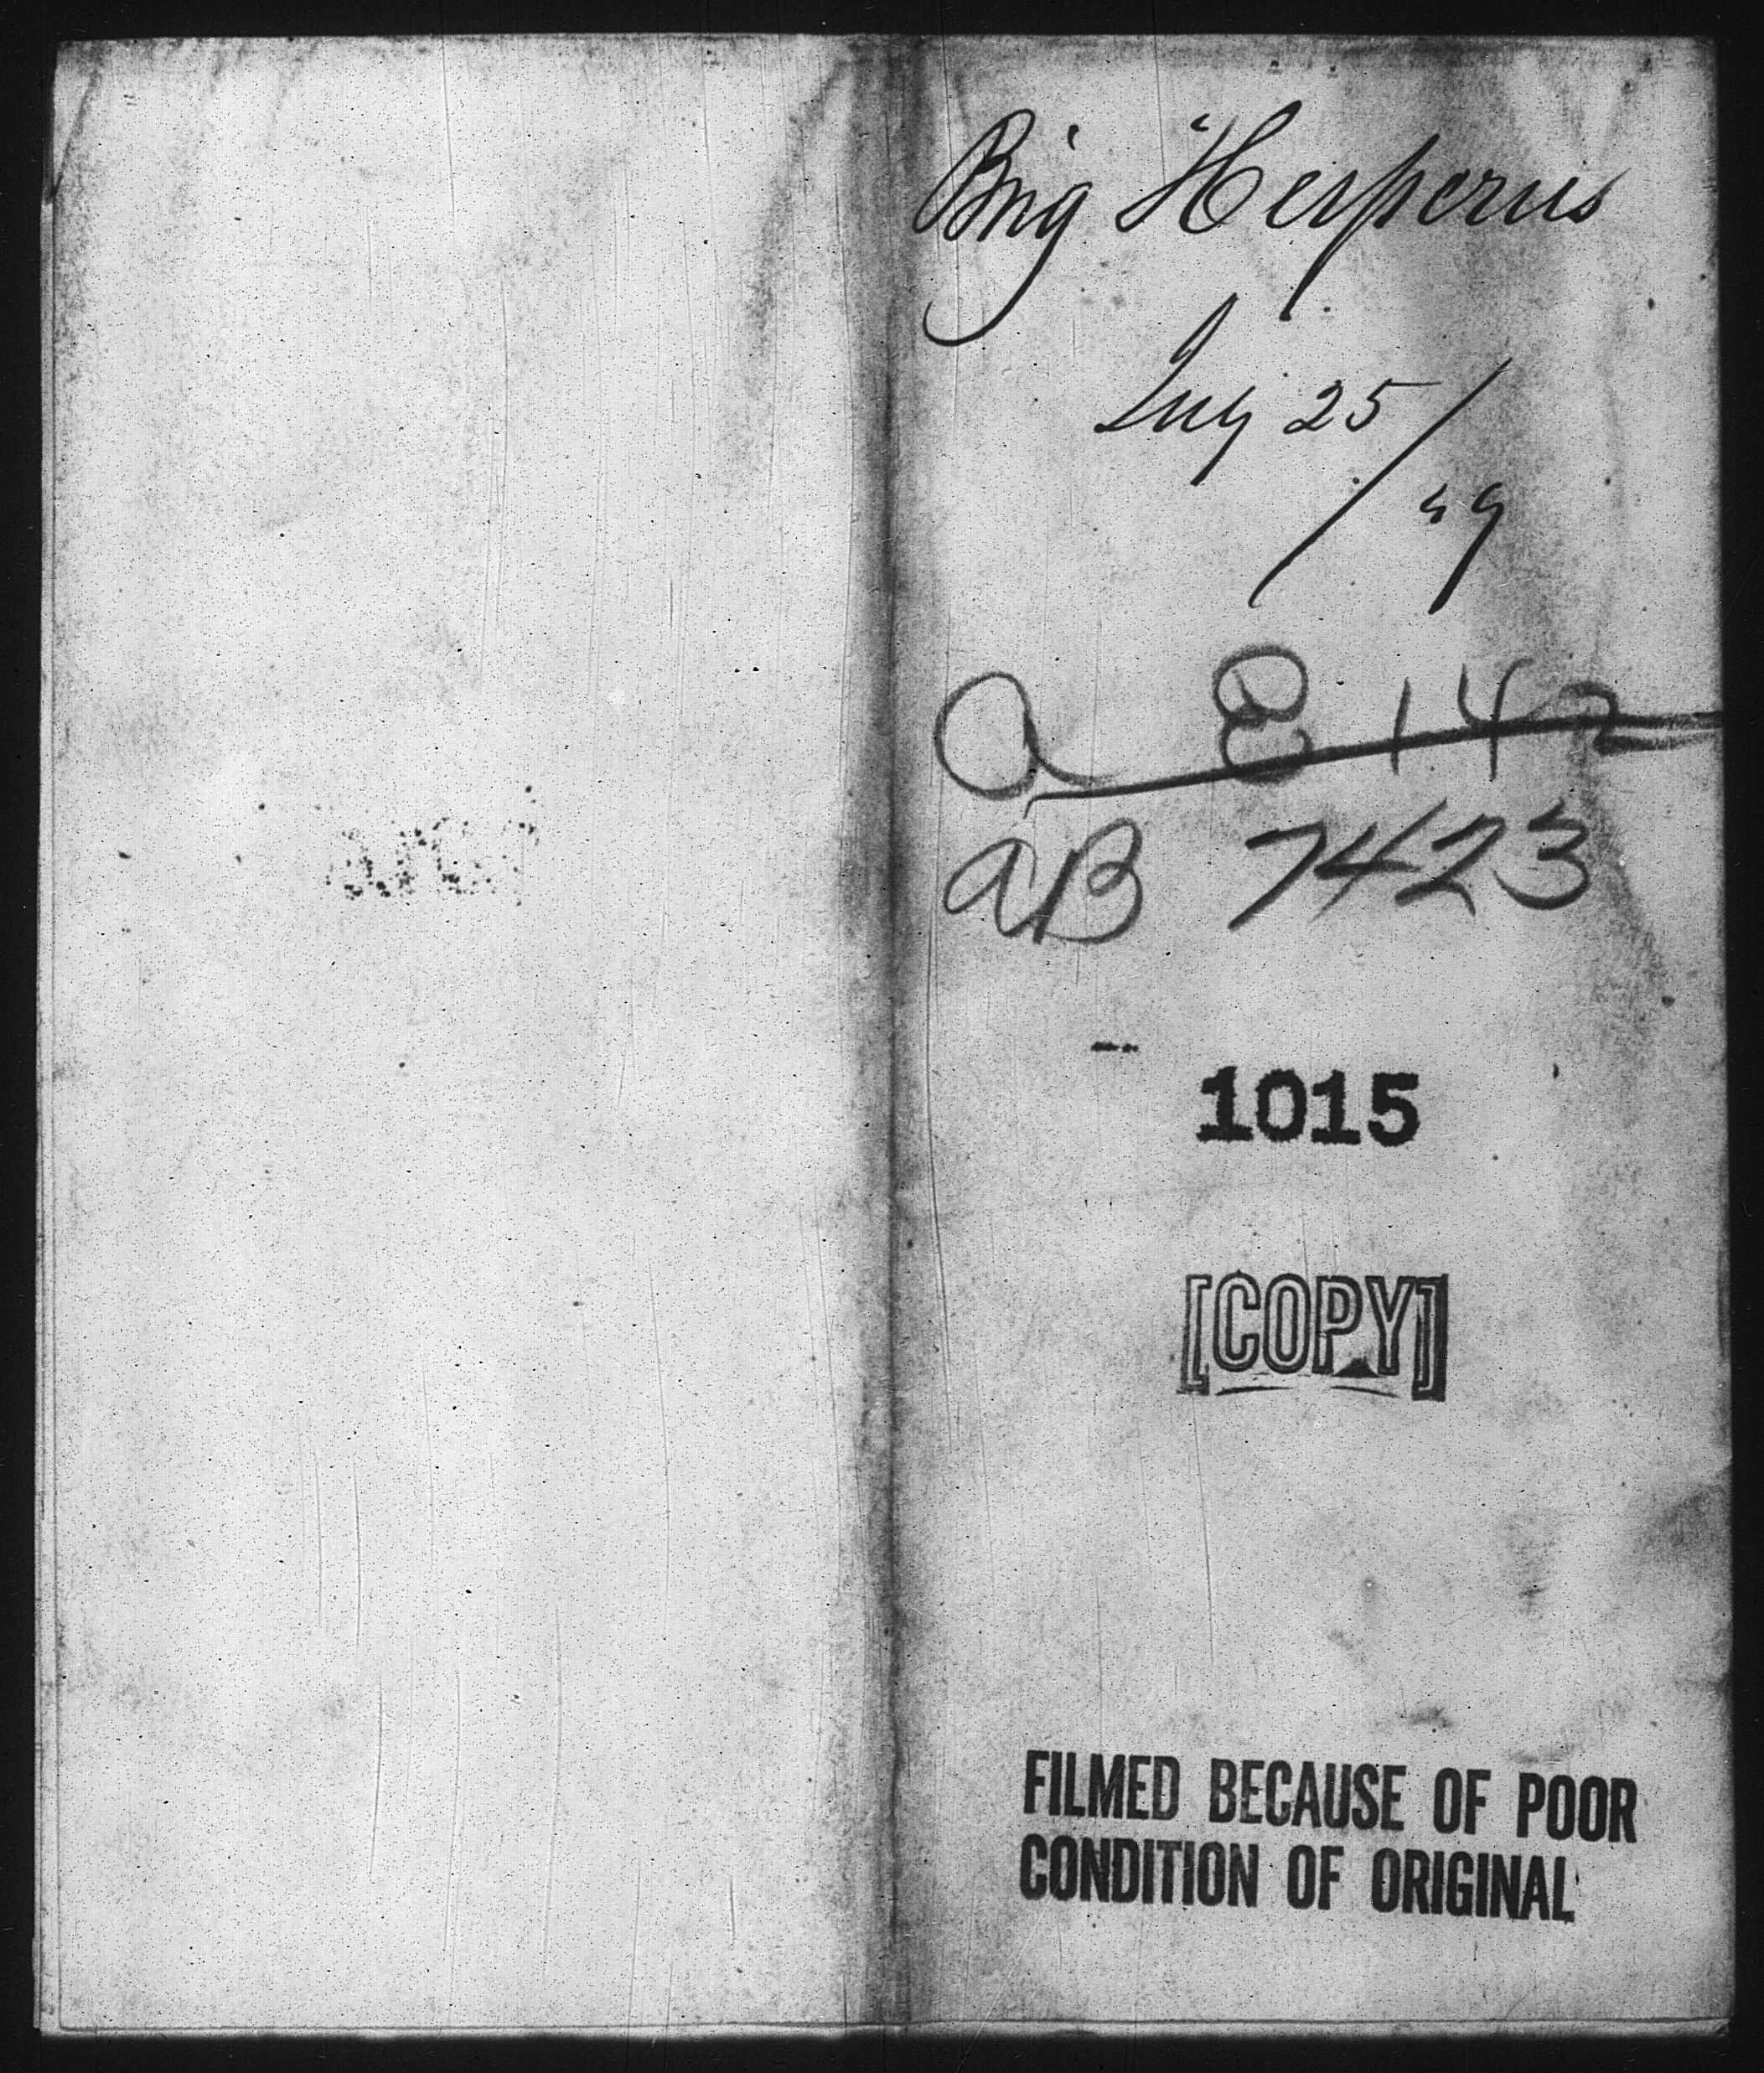 Brig Hesperus
July 25/
49
a 8142
aB 7423
1015
[COPY]
FILMED BECAUSE OF POOR
CONDITION OF ORIGINAL